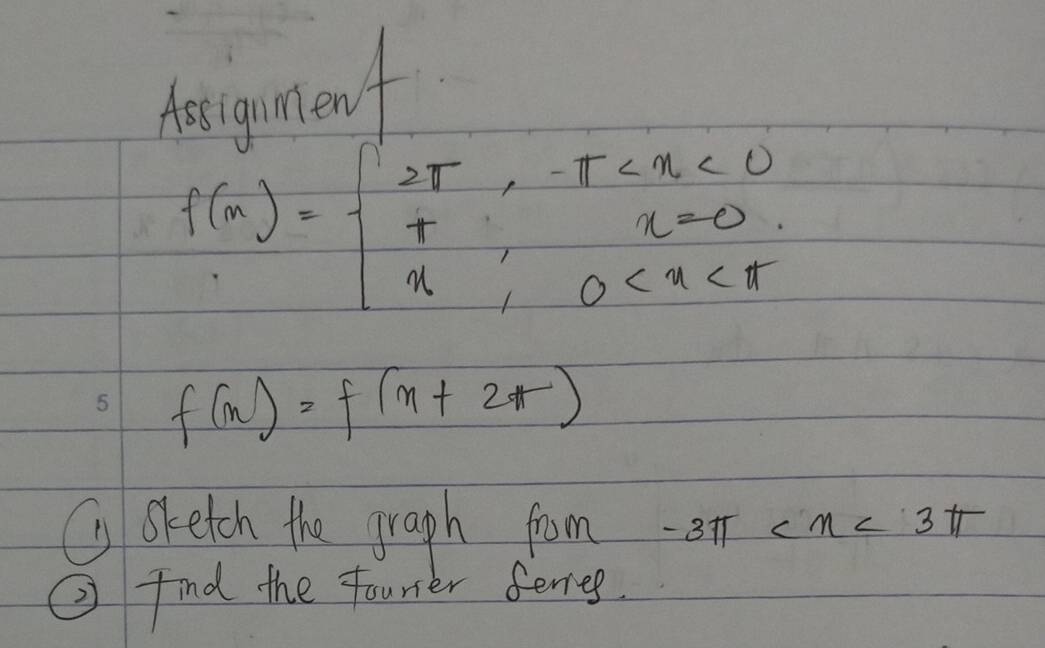 Assignment
f(x) = { 2π , -π < x < 0
π , x = 0 .
x , 0 < x < π
5 f(x) = f(x + 2π)
① Sketch the graph from -3π < x < 3π
② Find the Fourier Series.